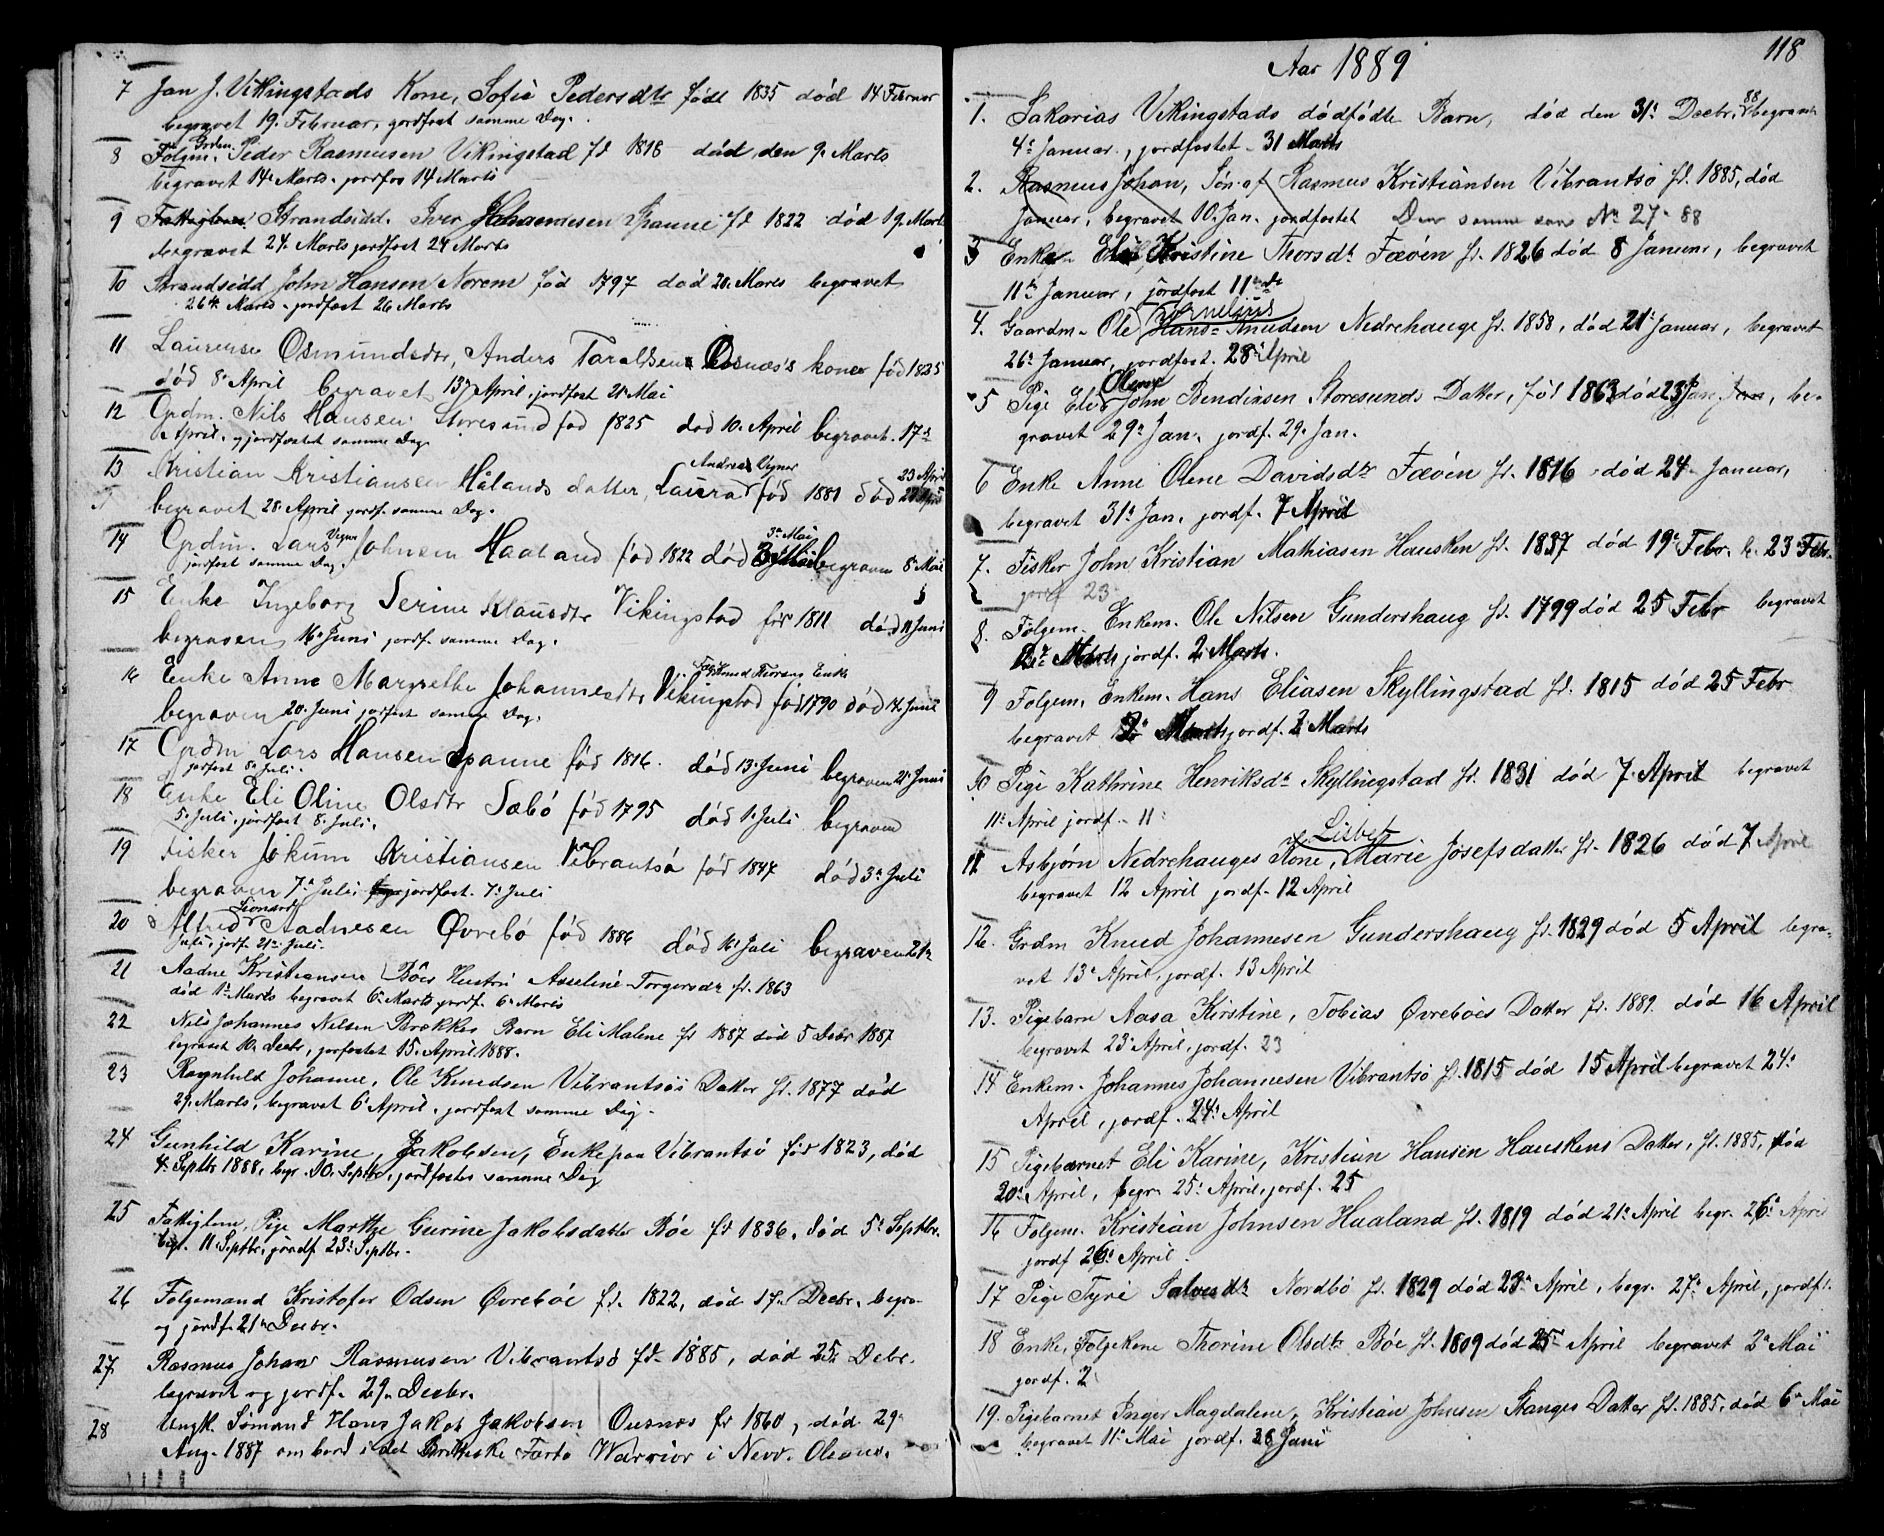 7 Jan J. Vikingstads Kone, Sofie Pedersdtr født 1835 død 14 Februar
begravet 19. Februar, jordfæst samme Dag.
Grdm.
8 Følgm. Peder Rasmusen Vikingstad fd 1818 død den 9. Marts
begravet 14 Marts. jordfæs 14 Marts
9 Strandsidd. Iver Johannesen Spanne fd 1822 død 19. Marts
begravet 24. Marts jordfæst 24 Marts
10 Strandsidd John Hansen Norem fød 1797 død 20. Marts begravet
26de Marts. jordfæst 26 Marts
11 Laurense Osmundsdtr, Anders Taraldsen Osnæs's kone fød 1825
død 8. April begravet 13 April, jordfæst 21 Mai
12 Grdm. Nils Hansen Storesund fød 1825 død 10. April begravet. 17de
April, jordfæstet samme Dag.
Andrea Vigner 23 April
13 Kristian Kristiansen Hålands datter, Laura fød 1881 død
begravet 28. April jordf. samme Dag.
Vigner 3de Mai
14 Grdm. Lars Johnsen Haaland fød 1822 død begraven 8. Mai
jordfæst samme Dag.
15 Enke Ingeborg Serine Klausdtr Vikingstad fød 1811 død 11 Juni
begraven 16. Juni jordf. samme Dag.
Enke
16 Enke Anne Margrethe Johannesdtr Vikingstad fød 1790 død 14 Juni
begraven 20. Juni jordfæst samme Dag.
17 Grdm Lars Hansen Spanne fød 1816. død 13. Juni begraven 21. Juni
jorfæst 8. Juli.
18 Enke Eli Oline Olsdtr Sæbø fød 1795 død 1. Juli begraven
5. Juli, jordfæst 8. Juli.
19 Fisker Jokum Kristiansen Vibrantsø fød 1847 død 3. Juli
begraven 7. Juli, jordfæst. 7. Juli
Leonard
20 Alfred Aadnesen Øvrebø fød 1886 død 16. Juli begraven 21de
Juli, jordf. 21de Juli.
21 Aadne Kristiansen Böes Hustru Asseline Torgersdtr fd. 1863
død 1. Marts begravet 6. Marts jordf. 6. Marts
22 Nils Johannes Nelsen Brekkes Barn Eli Malene fd 1887 død 5 Debr 1887
begravet 10. Decbr, jorfæstet 15. April 1888.
23 Ragnhild Johanne, Ole Knudsen Vibrantsøs Datter fd. 1877 død
29. Marts, begravet 6. April. jordfæst samme Dag.
24 Gunhild Karine, Jakobsen, Enke paa Vibrantsø fød 1823, død
4. Septbr 1888, begr. 10. Septbr, jordfæstes samme Dag
25 Fattiglem, Pige Marthe Gurine Jakobsdatter Böe fd 1836, død 5. Septbr.
begr. 11. Septbr, jordf 23. Septbr.
26 Følgemand Kristofer Odsen Øvreböe fd. 1822, død 17. Decbr. begra-
og jordf. 21. Decbr.
27. Rasmus Johan Rasmusen Vibrantsø fd. 1885, død 25. Debr.
begravet og jordf. 29. Decbr.
28 Ungk. Sömand Hans Jakob Jakobsen Ousnæs fd 1860, død 29.
Aug. 1887 om bord i det Brittiske Fartø Warrior i Nevv. Oleans.
118
Aar 1889
1. Sakarias Vikingstads dødfødte Barn, død den 31. Decbr. 88 begravet
4. Januar, jordfæstet 31 Marts
2. Rasmus Johan, Søn af Rasmus Kristiansen Vibrantsø fd. 1885, død
Januar, begravet 10. Jan. jordfæstet Den samme som No 27. 88
3 Enke Kristine Thorsdtr Fævén fd. 1826 død 8 Januar, begravet
11te Januar, jordfæst 11te
Kornelius
4. Gaardm. Ole Hans Knudsen Nedrehauge fd. 1858, død 21. Januar, begravet
26. Januar, jordfæst. 28. April
Olene
5 Pige Eli John Bendiksen Storesunds Datter, fød 1863 død 23 Jan, be-
gravet 29. Jan. jordf. 29. Jan.
6 Enke Anne Olene Davidsdtr Fævén fd. 1816 død 24. Januar,
begravet 31. Jan. jordf. 7 April
7. Fisker John Kristian Mathiasen Hausken fd. 1837 død 19. Febr. b. 23 Febr.
jordf 23
8. Følgem. Enkem. Ole Nilsen Gundershaug fd. 1799 død 25 Febr begravet
2. Marts jordf. 2. Marts.
9 Følgem. Enkem. Hans Eliasen Skyllingstad fd. 1815 død 25 Febr
begravet 2. Marts jordf. 2 Marts
10 Pige Kathrine Henriksdtr Skyllingstad fd. 1831 død 7. April begravet
11. April jordf. 11.
Lisbet
11 Asbjørn Nedrehauges Kone, Marie Josefsdatter fd. 1826 død 7 April
begravet 12 April jordf. 12 April
12. Grdm Knud Johannesen Gundershaug fd. 1829 død 5 April begra-
vet 13. April, jordf. 13 April
13. Pigebarn Aasa Kirstine, Tobias Øvreböes Datter fd. 1889. død 16 April
begravet 23. April, jordf. 23
14 Enkem. Johannes Johannesen Vibrantsø fd. 1815 død 15 April begravet 24.
April, jordf. 24. April
15 Pigebarnet Eli Karine, Kristian Hansen Hauskens Datter, fd. 1885, død
20. April, begr. 25. April, jordf. 25
16 Følgem. Kristian Johnsen Haaland fd. 1819 død 21. April begr. 26. April
jordf 26. April.
17 Pige Tyri Salvesdtr Nordbö fd. 1829 død 23. April, begr. 27. April, jordf.
18 Enke, Følgekone Thorine Olsdtr Böe fd. 1809 død 25. April begravet 2. Mai
jordf. 2.
19. Pigebarnet Inger Magdalene, Kristian Johnsen Stanges Datter fd. 1885, død 6. Mai
begravet 11. Mai jordf. 28 Juni